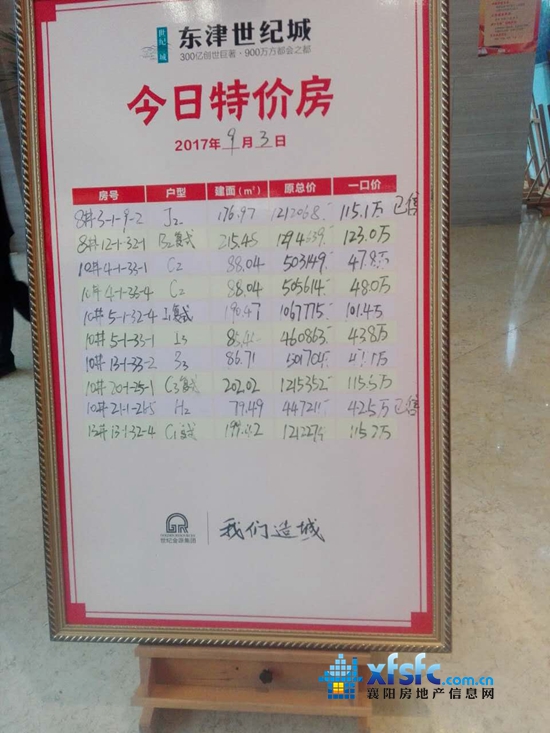 世纪城
东津世纪城
300亿创世巨著·900万方都会之都
今日特价房
2017年9月3日
房号 户型 建面(m²) 原总价 一口价
8#3-1-9-2 J2 176.97 1212068 115.1万 已售
8#12-1-32-1 B2复式 215.45 1294639 123.0万
10#4-1-33-1 C2 88.04 503149 47.8万
10#4-1-33-4 C2 88.04 505614 48.0万
10#5-1-32-4 复式 190.47 1067775 101.4万
10#5-1-33-1 460863 43.8万
10#13-1-33-2 86.71 501704
10#20-1-25-1 C3复式 202.02 1215352 115.5万
10#21-1-26-5 H2 79.49 447211 42.5万 已售
13-1-32-4 复式 115.2万
GR
世纪金源集团
我们造城
xfsfc.com.cn
襄阳房地产信息网